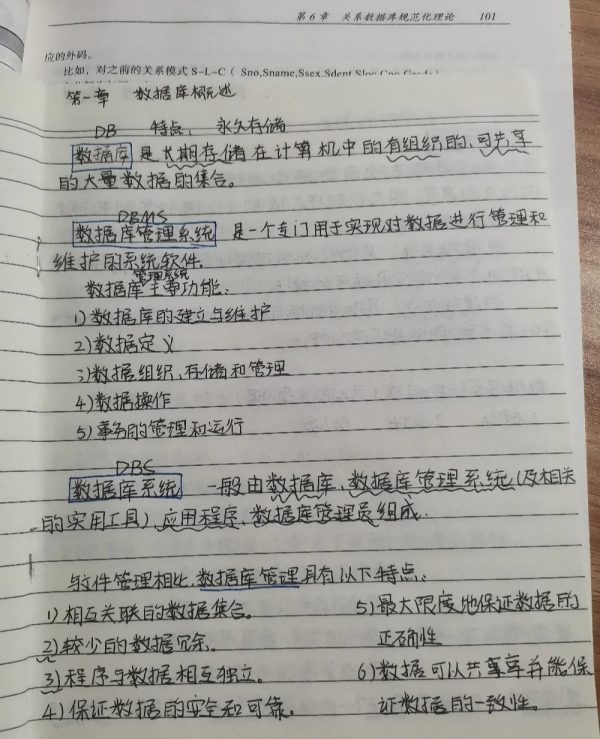 第6章 关系数据库规范化理论 101
应的外码。
比如，对之前的关系模式 S-L-C（Sno,Sname,Ssex,Sdept,Sloc,Cno,Grade）
第一章 数据库概述
DB 特点：永久存储
数据库是长期存储在计算机中的有组织的、可共享
的大量数据的集合。
DBMS
数据库管理系统 是一个专门用于实现对数据进行管理和
维护的系统软件.
管理系统
数据库主要功能：
1)数据库的建立与维护
2)数据定义
3)数据组织、存储和管理
4)数据操作
5)事务的管理和运行
DBS
数据库系统 一般由数据库、数据库管理系统(及相关
的实用工具)、应用程序、数据库管理员组成.
与文件管理相比,数据库管理具有以下特点：
1)相互关联的数据集合。
2)较少的数据冗余.
3)程序与数据相互独立.
4)保证数据的安全和可靠.
5)最大限度地保证数据的
正确性
6)数据可以共享并能保
证数据的一致性。